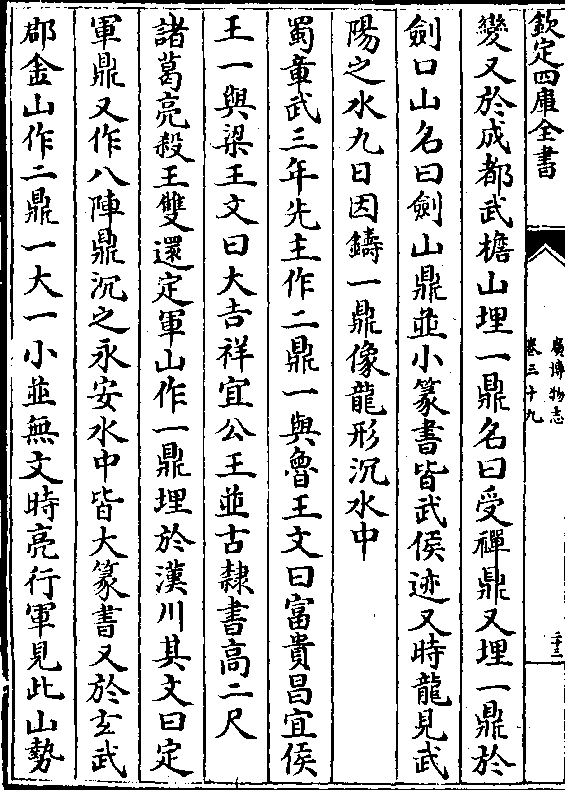 欽定四庫全書
廣博物志
卷三十九
二十三
變又於成都武檐山埋一鼎名曰受禪鼎又埋一鼎於
劍口山名曰劍山鼎並小篆書皆武侯迹又時龍見武
陽之水九日因鑄一鼎像龍形沉水中
蜀章武三年先主作二鼎一與魯王文曰富貴昌宜侯
王一與梁王文曰大吉祥宜公王並古隸書高二尺
諸葛亮殺王雙還定軍山作一鼎埋於漢川其文曰定
軍鼎又作八陣鼎沉之永安水中皆大篆書又於玄武
郡金山作二鼎一大一小並無文時亮行軍見此山勢